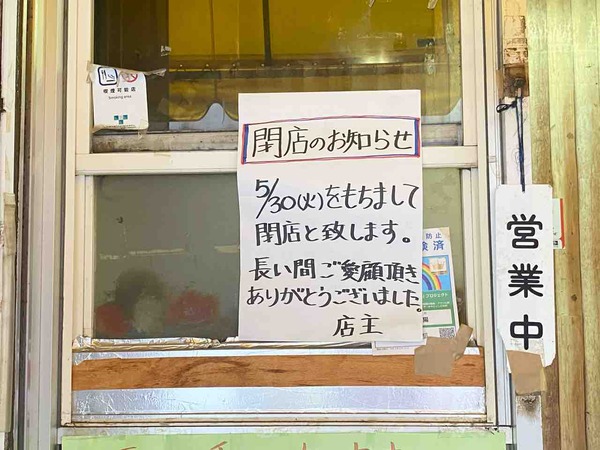 喫煙可能店
Smoking area
閉店のお知らせ
5/30(火)をもちまして
閉店と致します。
長い間ご愛顧頂き
ありがとうございました。
店主
防止
検済
営業中